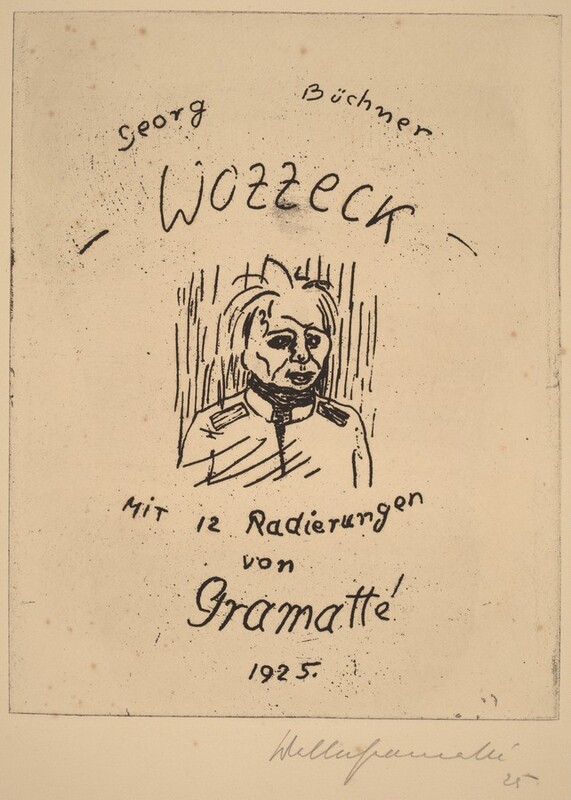 Georg Büchner
Wozzeck
Mit 12 Radierungen
von
Gramatté
1925.
Walter Gramatté
25